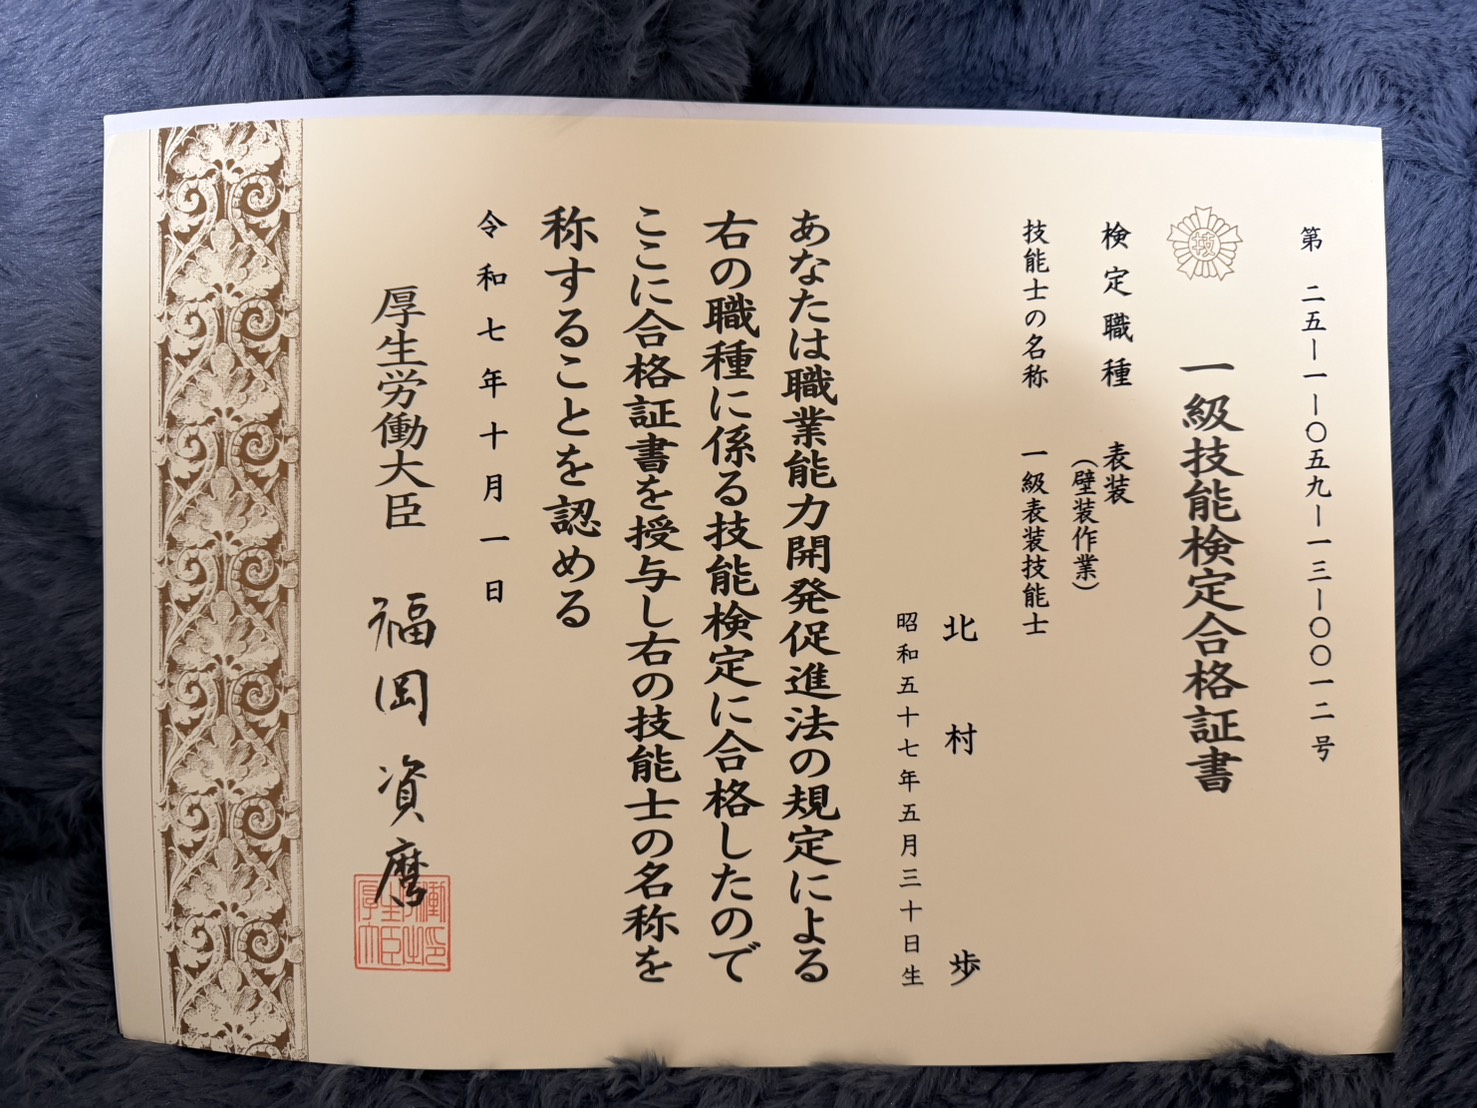 第二五ー一ー〇五九ー一三ー〇〇一二号
技
一級技能検定合格証書
検定職種 表装
（壁装作業）
技能士の名称 一級表装技能士
北村 歩
昭和五十七年五月三十日生
あなたは職業能力開発促進法の規定による
右の職種に係る技能検定に合格したので
ここに合格証書を授与し右の技能士の名称を
称することを認める
令和七年十月一日
厚生労働大臣 福岡資麿
厚生労働大臣之印